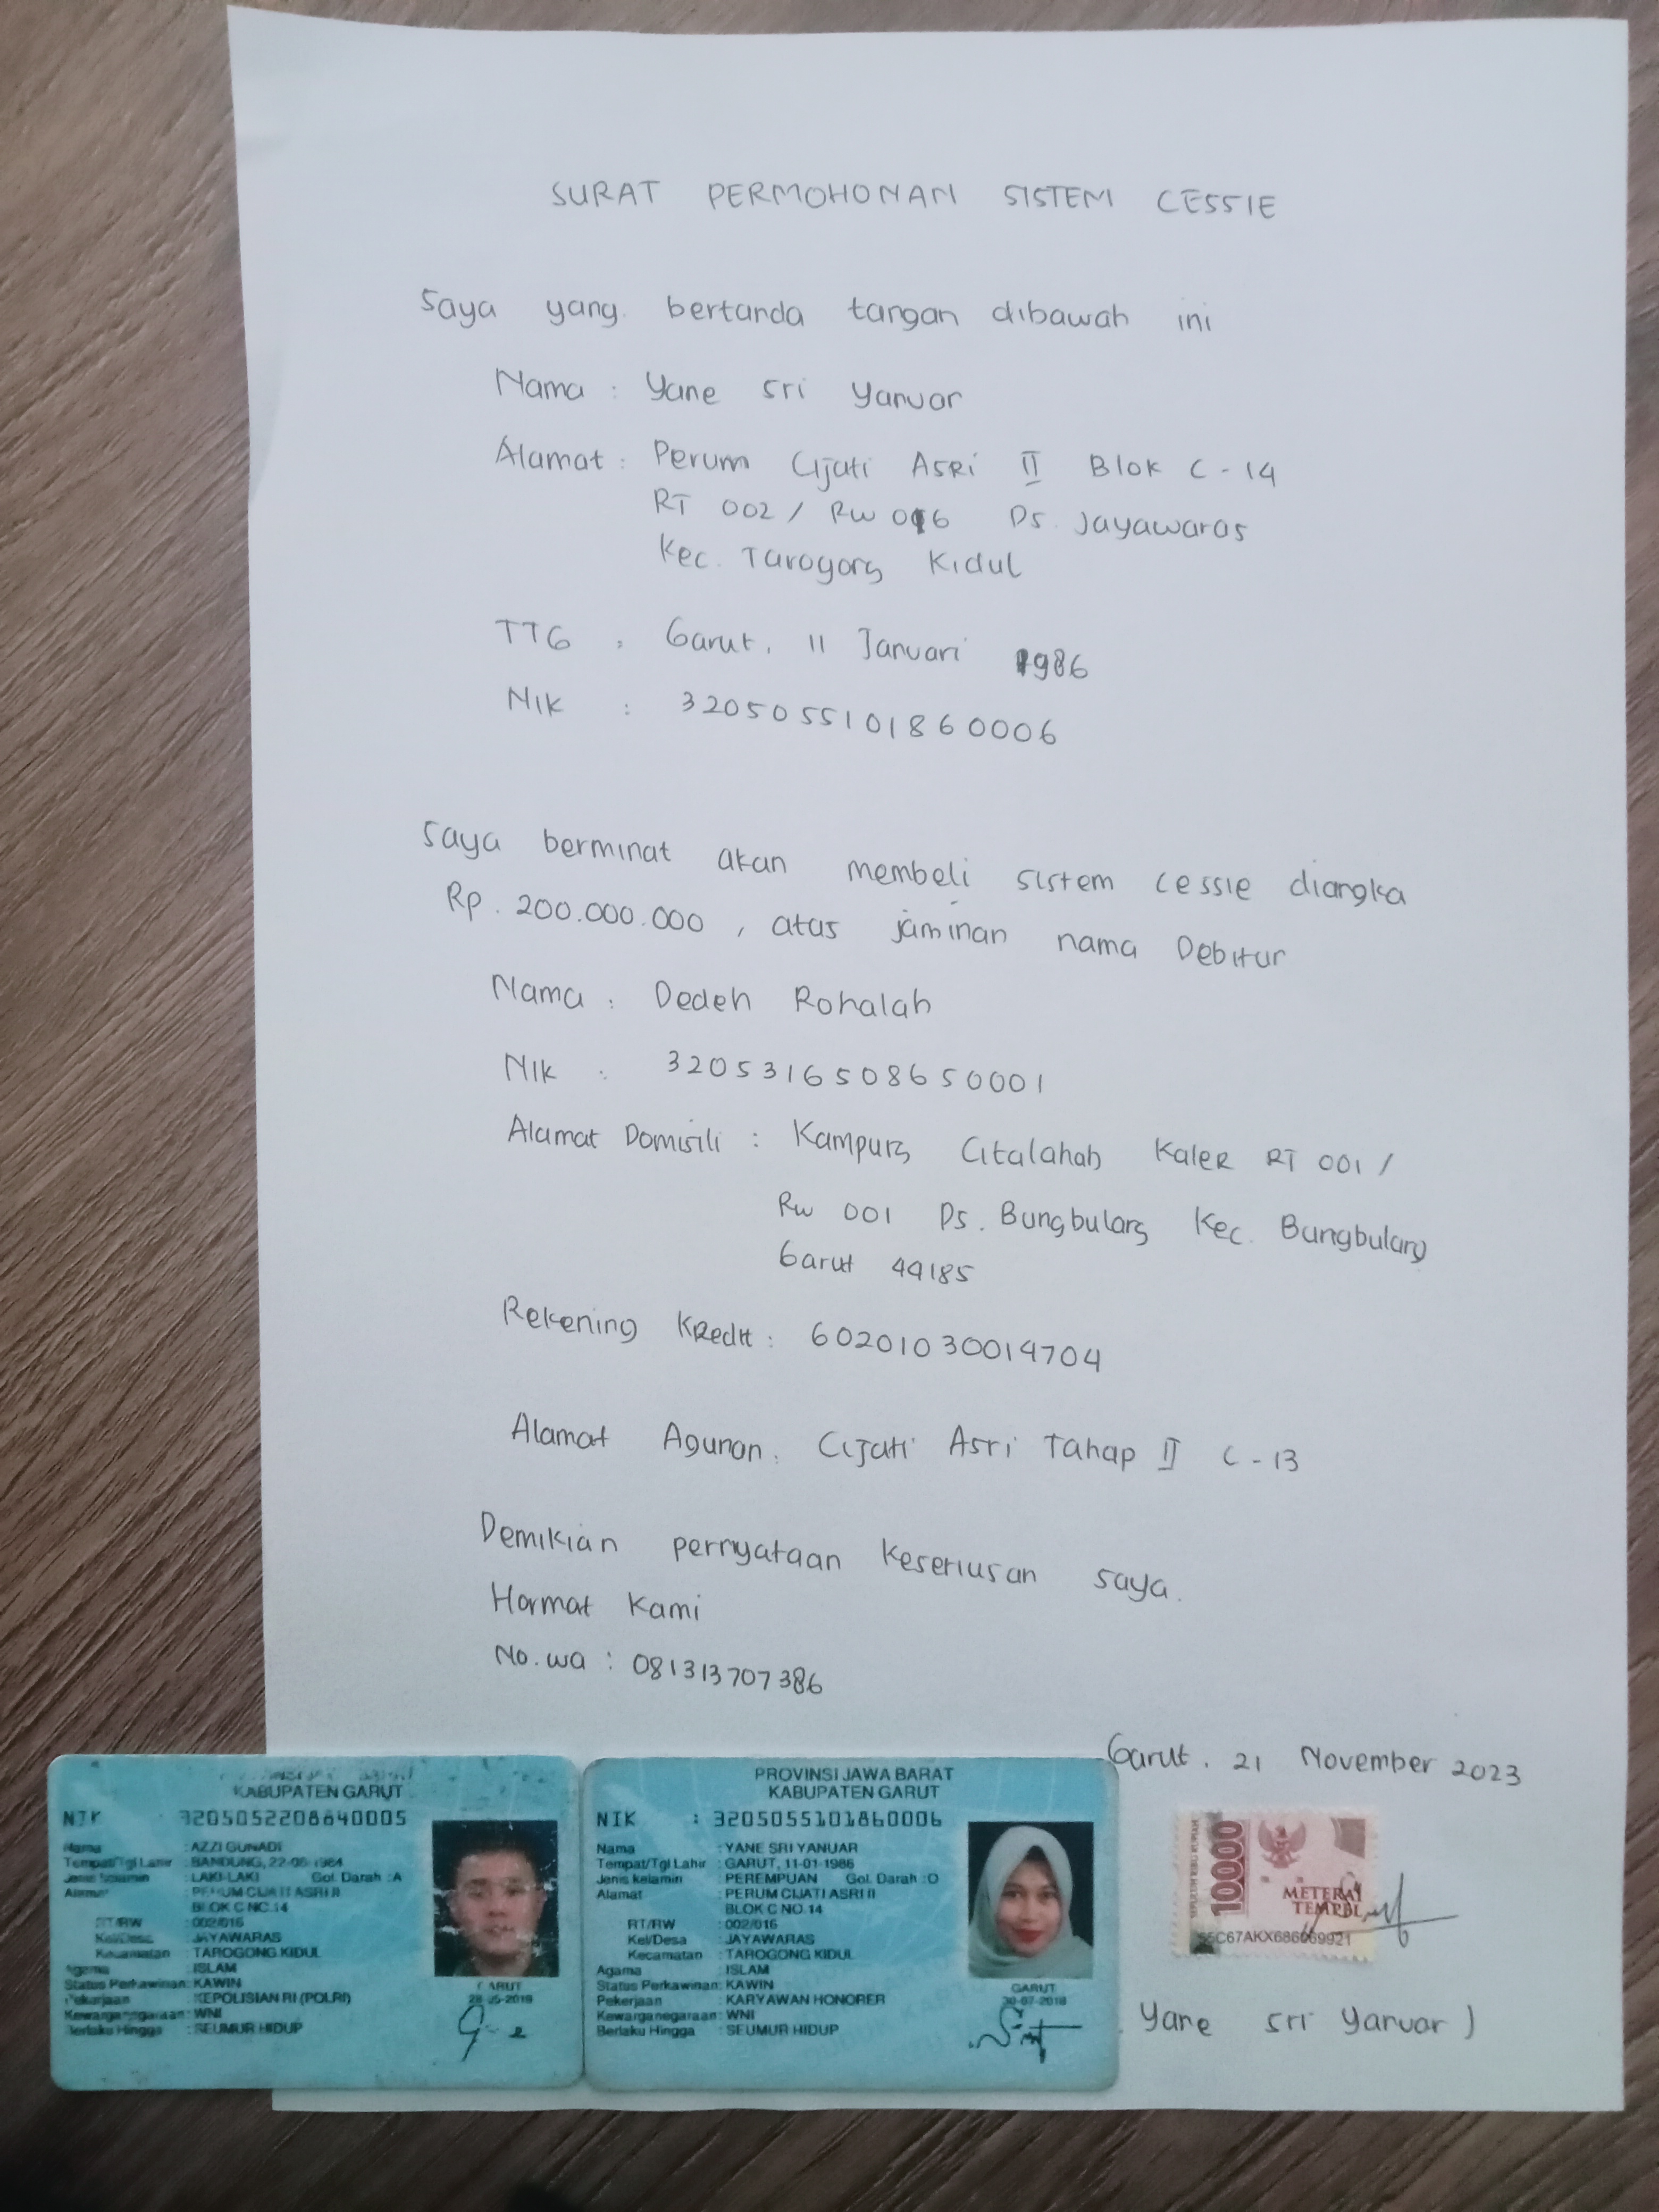 SURAT PERMOHONAN SISTEM CESSIE
Saya yang bertanda tangan dibawah ini
Nama : Yane Sri Yanuar
Alamat : Perum Cijati Asri II Blok C - 14
RT 002 / RW 016 Ds. Jayawaras
Kec. Tarogong Kidul
TTG : Garut, 11 Januari 1986
Nik : 3205055101860006
Saya berminat akan membeli sistem cessie diangka
Rp. 200.000.000, atas jaminan nama Debitur
Nama : Dedeh Rohalah
Nik : 3205316508650001
Alamat Domisili : Kampung Citalahab Kaler RT 001 /
RW 001 Ds. Bungbulang Kec. Bungbulang
Garut 44185
Rekening Kredit : 60201030014704
Alamat Agunan : Cijati Asri Tahap II C - 13
Demikian pernyataan keseriusan saya.
Hormat Kami
No. wa : 081313707386
Garut, 21 November 2023
KABUPATEN GARUT
NIK 3205052208840005
Nama : AZZI GUNADI
Tempat/Tgl Lahir : BANDUNG, 22-08-1984
Jenis kelamin : LAKI-LAKI Gol. Darah : A
Alamat : PERUM CIJATI ASRI II
BLOK C NO.14
RT/RW : 002/016
Kel/Desa : JAYAWARAS
Kecamatan : TAROGONG KIDUL
Agama : ISLAM
Status Perkawinan: KAWIN
Pekerjaan : KEPOLISIAN RI (POLRI)
Kewarganegaraan: WNI
Berlaku Hingga : SEUMUR HIDUP
GARUT
28-05-2018
PROVINSI JAWA BARAT
KABUPATEN GARUT
NIK : 3205055101860006
Nama : YANE SRI YANUAR
Tempat/Tgl Lahir : GARUT, 11-01-1986
Jenis kelamin : PEREMPUAN Gol. Darah : O
Alamat : PERUM CIJATI ASRI II
BLOK C NO.14
RT/RW : 002/016
Kel/Desa : JAYAWARAS
Kecamatan : TAROGONG KIDUL
Agama : ISLAM
Status Perkawinan: KAWIN
Pekerjaan : KARYAWAN HONORER
Kewarganegaraan: WNI
Berlaku Hingga : SEUMUR HIDUP
GARUT
30-07-2018
10000
METERAI
TEMPEL
Yane Sri Yanuar )